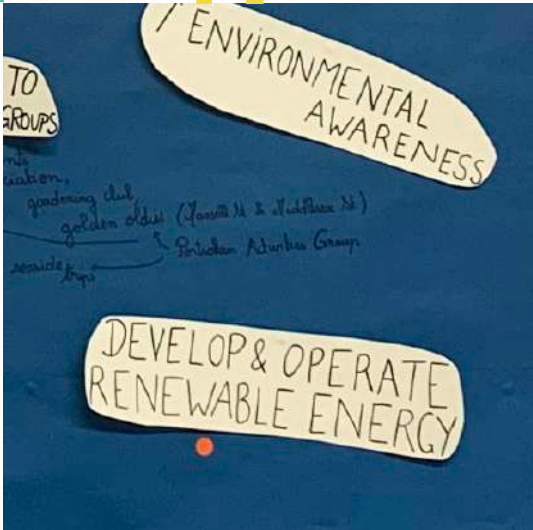 / ENVIRONMENTAL
AWARENESS
TO
GROUPS
gardening club,
golden oldies (
& St)
Activities Group
seaside
trips
DEVELOP & OPERATE
RENEWABLE ENERGY